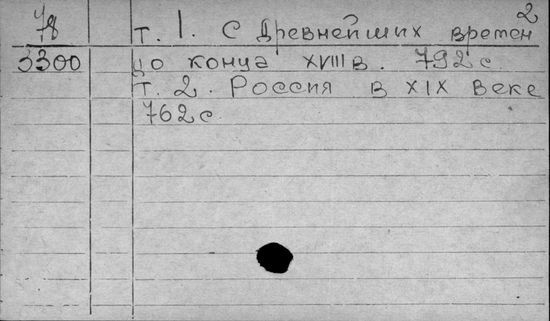 2
4/8 т. 1. С Древнейших времен
3300 до конца XVIII в. 792 с.
т. 2. Россия в XIX веке
762 с.